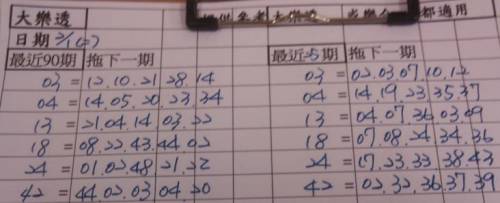 大樂透 提供參考 大樂透 都適用
日期 2/1(二)
最近90期 拖下一期 最近25期 拖下一期
03 = 12.10.21.28.14 03 = 02.03.07.10.12
04 = 14.05.20.23.34 04 = 14.19.23.35.37
13 = 21.04.14.03.22 13 = 04.07.36.03.09
18 = 08.22.43.44.02 18 = 07.08.24.34.36
24 = 01.02.48.21.22 24 = 17.23.33.38.43
42 = 44.02.03.04.20 42 = 02.32.36.37.39